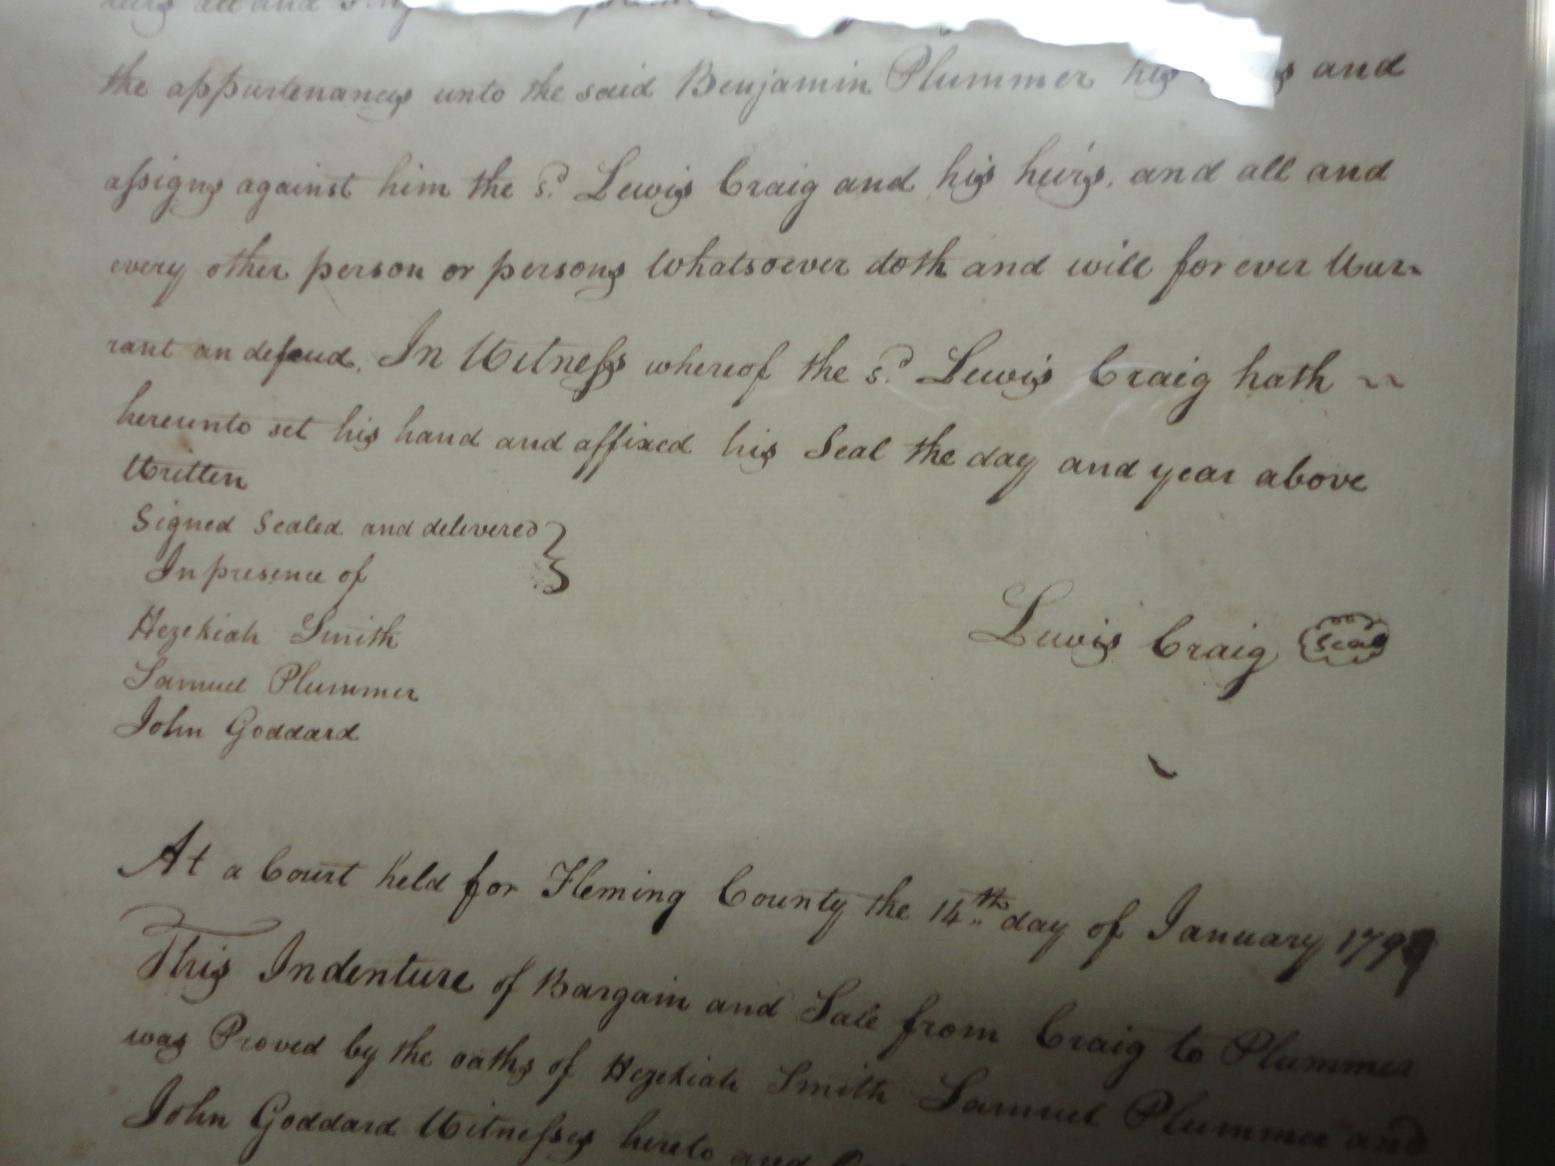 heirs all and
the appurtenances unto the said Benjamin Plummer his and
assigns against him the sd. Lewis Craig and his heirs, and all and
every other person or persons Whatsoever doth and will for ever War-
rant an defend. In Witness whereof the sd. Lewis Craig hath
hereunto set his hand and affixed his Seal the day and year above
Written
Signed Sealed and delivered }
In presence of
Hezekiah Smith
Lewis Craig Seal
Samuel Plummer
John Goddard
At a Court held for Fleming County the 14th day of January 179
This Indenture of Bargain and Sale from Craig to Plummer
was Proved by the oaths of Hezekiah Smith Samuel Plummer and
John Goddard Witnesses hereto and